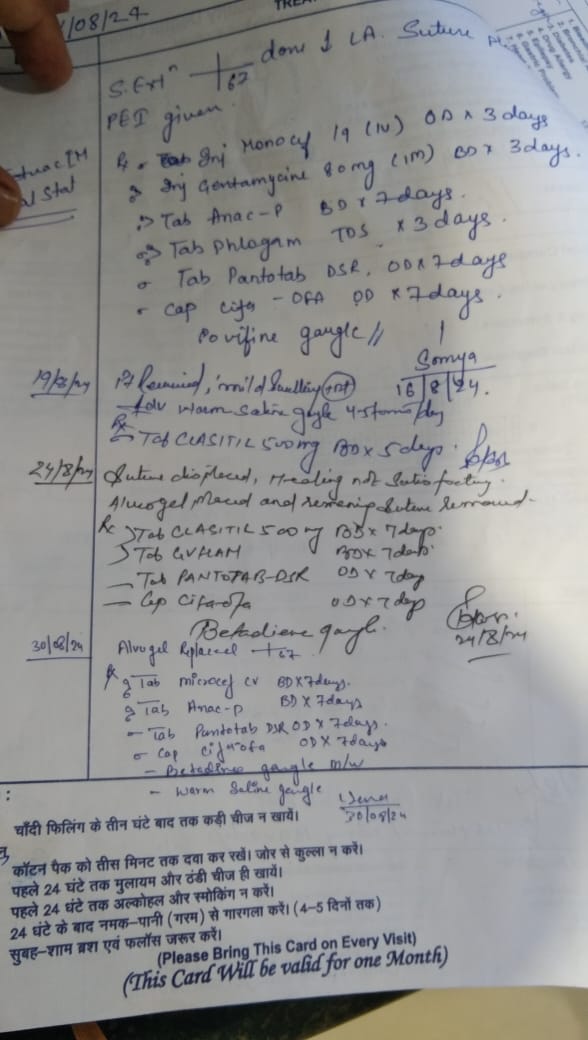 /08/24
TREA
S. Extn 67 done LA. Suture
PEI given.
Inj Monocef 1g (IV) OD x 3 days
Inj Gentamycine 80 mg (IM) BD x 3 days.
Tab Anac-P BD x 7 days.
Tab Phlogam TDS x 3 days.
Tab Pantotab DSR, OD x 7 days
Cap cifa - OFA OD x 7 days.
Povifine gargle //
Somya
16/8/24.
19/8/24
mild Swelling
Adv Warm Saline gargle 4-5 times/day
Rx Tab CLASITIL 500 mg BD x 5 days.
24/8/24
Suture displaced, Healing not Satisfactory.
Alvogel placed and remaining Suture removed.
Rx Tab CLASITIL 500 mg BD x 7 days.
Tab
BD x 7 days.
Tab PANTOTAB-DSR OD x 7 day
Cap Cifarofa OD x 7 day
Betadiene gargle.
24/8/24
30/08/24
Alvogel Replaced 67
Rx Tab microcef cv BD x 7 days.
Tab Anac-p BD x 7 days
Tab Pantotab DSR OD x 7 days.
Cap cifarofa OD x 7 days
Betadine gargle m/w
warm Saline gargle
30/08/24
चाँदी फिलिंग के तीन घंटे बाद तक कड़ी चीज न खायें।
कॉटन पैक को तीस मिनट तक दवा कर रखें। जोर से कुल्ला न करें।
पहले 24 घंटे तक मुलायम और ठंडी चीज ही खायें।
पहले 24 घंटे तक अल्कोहल और स्मोकिंग न करें।
24 घंटे के बाद नमक-पानी (गरम) से गारगला करें। (4-5 दिनों तक)
सुबह-शाम ब्रश एवं फलॉस जरूर करें।
(Please Bring This Card on Every Visit)
(This Card Will be valid for one Month)